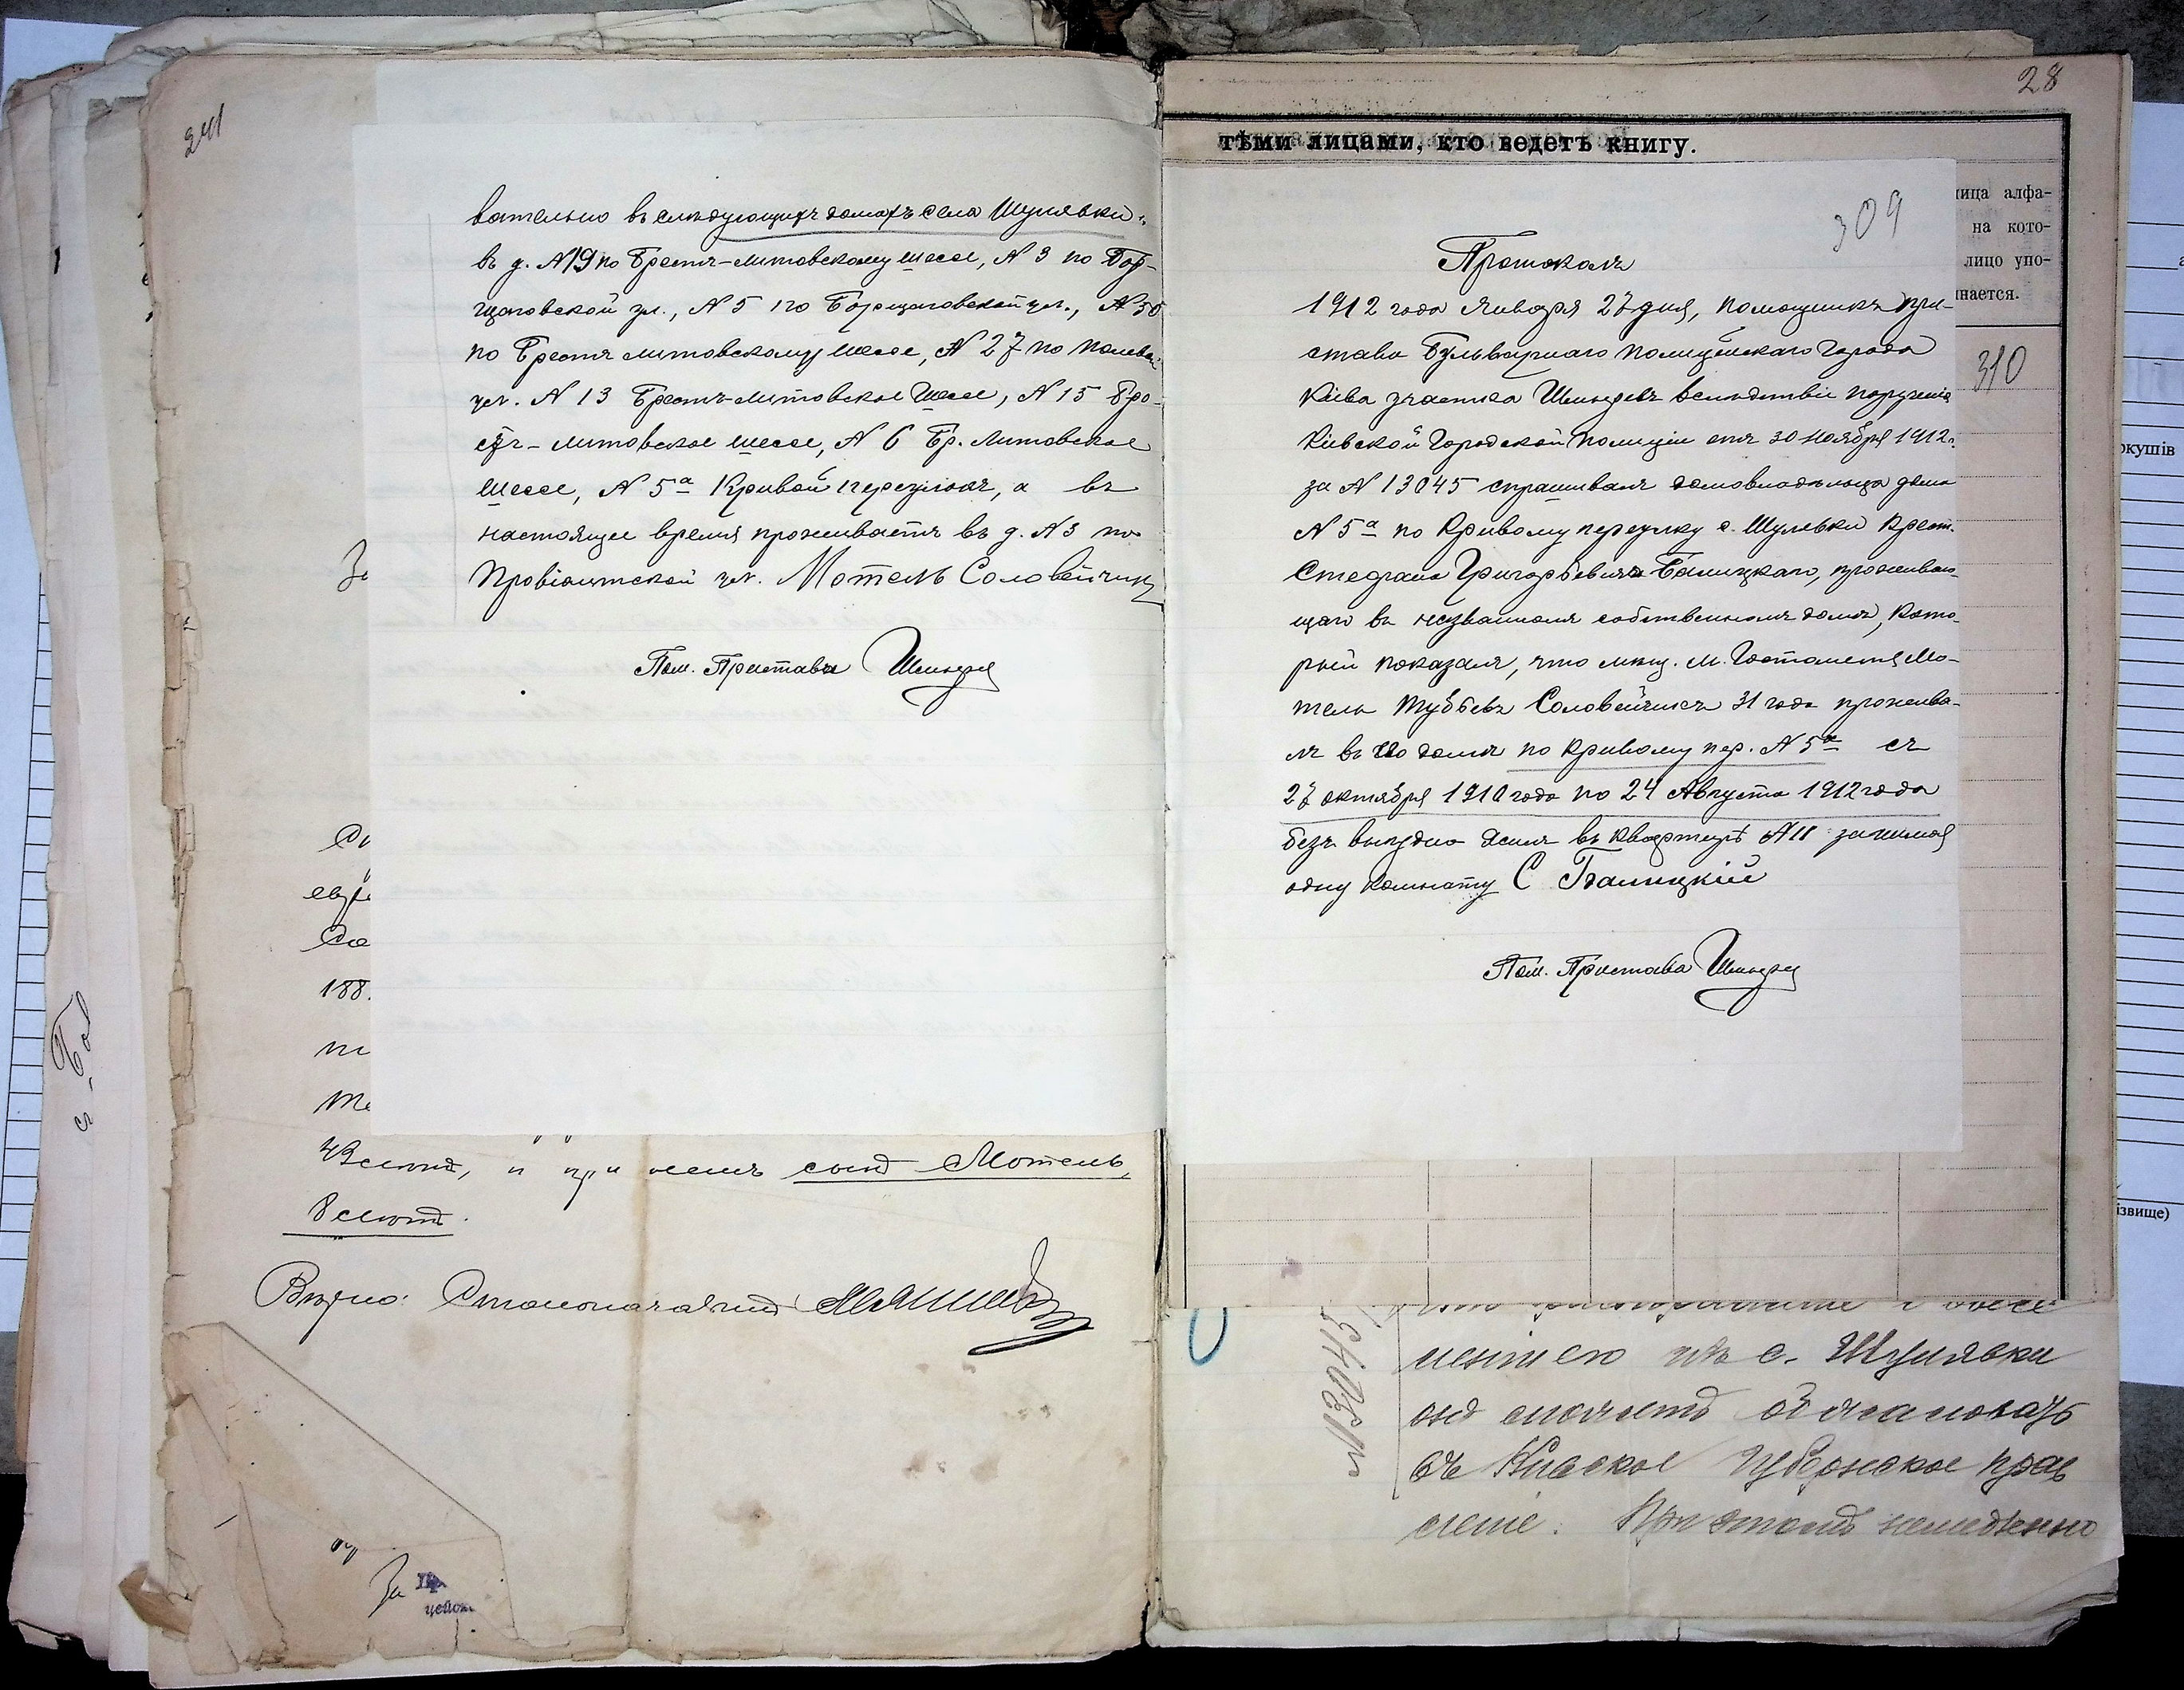 241
вательно въ слѣдующихъ домахъ села Шулявки:
въ д. №19 по Брестъ-Литовскому шоссе, № 3 по Бор-
щаговской ул., № 5 по Борщаговской ул., № 50
по Брестъ Литовскому шоссе, № 27 по Полевой
ул. № 13 Брестъ-Литовское шоссе, № 15 Бре-
стъ-Литовское шоссе, № 6 Бр. Литовское
шоссе, № 5а Кривой переулокъ, а въ
настоящее время проживаетъ въ д. № 3 по
Провіантской ул. Мотель Соловейчик
Пом. Пристава
За
евре
188
42 лѣтъ, и при немъ сынъ Мотель,
8 лѣтъ.
Вѣрно: Столоначальникъ
За
28
тѣми лицами, кто ведетъ книгу.
ница алфа-
на кото-
лицо упо-
инается.
309
310
Протоколъ
1912 года Января 27 дня, Помощникъ При-
става Бульварнаго Полицейскаго Города
Кіева участка вслѣдствіе порученія
Кіевской Городской Полиціи отъ 30 Ноября 1912 г.
за № 13045 спрашивалъ домовладѣльца дома
№ 5а по Кривому переулку с. Шулявки Крест.
Стефана Григорьевича Балицкаго, проживаю-
щаго въ названномъ собственномъ домѣ, кото-
рый показалъ, что мѣщ. м. Гостомеля Мо-
тель Соловейчикъ 31 года прожива-
лъ въ его домѣ по Кривому пер. № 5а съ
27 октября 1910 года по 24 Августа 1912 года
безъ выѣздно жилъ въ квартирѣ № 11 занимая
одну комнату С Балицкій
Пом. Пристава
№ 13045
из с. Шулявки
онъ обжаловать
въ Кіевское Губернское прав
леніе. При этомъ немедленно
окушів
ізвище)